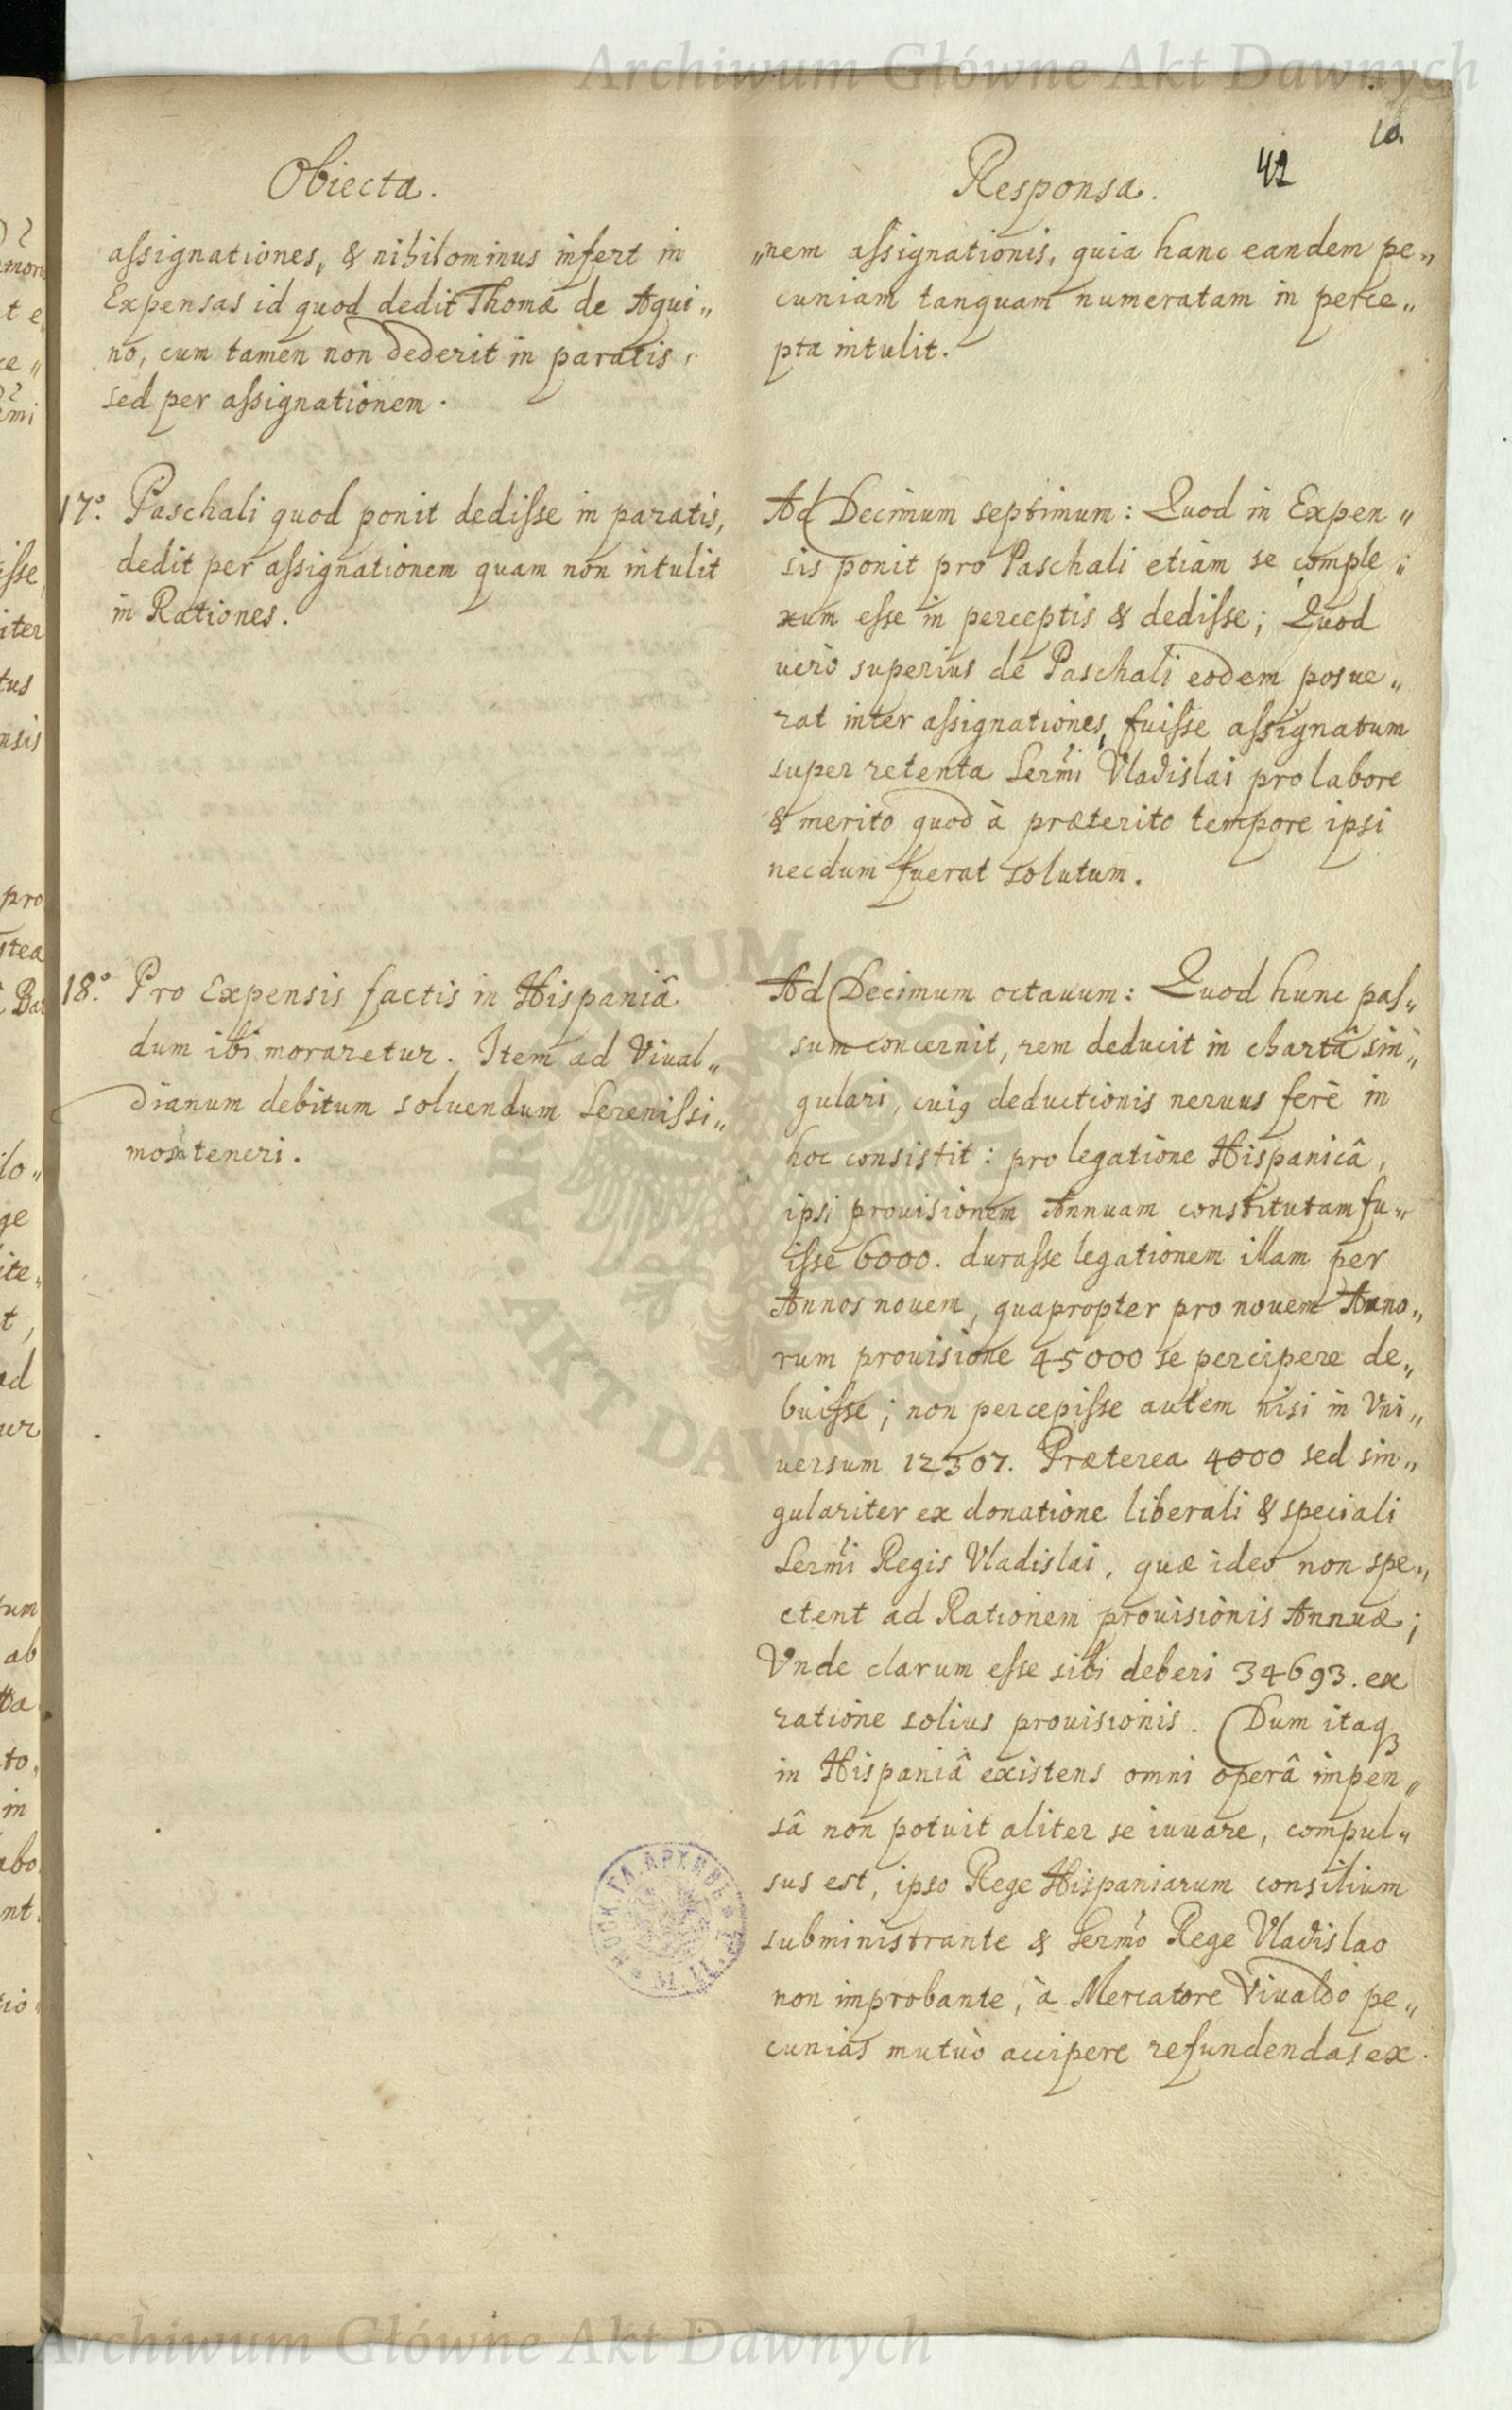 Archiwum Główne Akt Dawnych
10.
42
Obiecta.
assignationes, & nihilominus infert in
Expensas id quod dedit Thomæ de Aqui„
no, cum tamen non dederit in paratis,
sed per assignationem.
17º. Paschali quod ponit dedisse in paratis,
dedit per assignationem quam non intulit
in Rationes.
18º. Pro Expensis factis in Hispaniâ
dum ibi moraretur. Item ad Viual„
dianum debitum soluendum Serenissi„
mos teneri.
Responsa.
„nem assignationis, quia hanc eandem pe„
cuniam tanquam numeratam in perce„
pta intulit.
Ad Decimum septimum: Quod in Expen„
sis ponit pro Paschali etiam se comple„
xum esse in perceptis & dedisse; Quod
uerò superius de Paschali eodem posue„
rat inter assignationes, fuisse assignatum
super retenta Sermi Vladislai pro labore
& merito quod à præterito tempore ipsi
necdum fuerat solutum.
Ad Decimum octauum: Quod hunc pas„
sum concernit, rem deducit in chartâ sin„
gulari, cuiq deductionis neruus ferè in
hoc consistit: pro legatione Hispanicâ,
ipsi prouisionem Annuam constitutam fu„
isse 6000. durasse legationem illam per
Annos nouem, quapropter pro nouem Anno„
rum prouisione 45000 se percipere de„
buisse; non percepisse autem nisi in Vni„
uersum 12307. Præterea 4000 sed sin„
gulariter ex donatione liberali & speciali
Sermi Regis Vladislai, quæ ideo non spe„
ctent ad Rationem prouisionis Annuæ;
Vnde clarum esse sibi deberi 34693. ex
ratione solius prouisionis. Dum itaq3
in Hispaniâ existens omni operâ impen„
sâ non potuit aliter se iuuare, compul„
sus est, ipso Rege Hispaniarum consilium
subministrante & Sermo Rege Vladislao
non improbante, à Mercatore Viualdo pe„
cunias mutuò accipere refundendas ex
Archiwum Główne Akt Dawnych